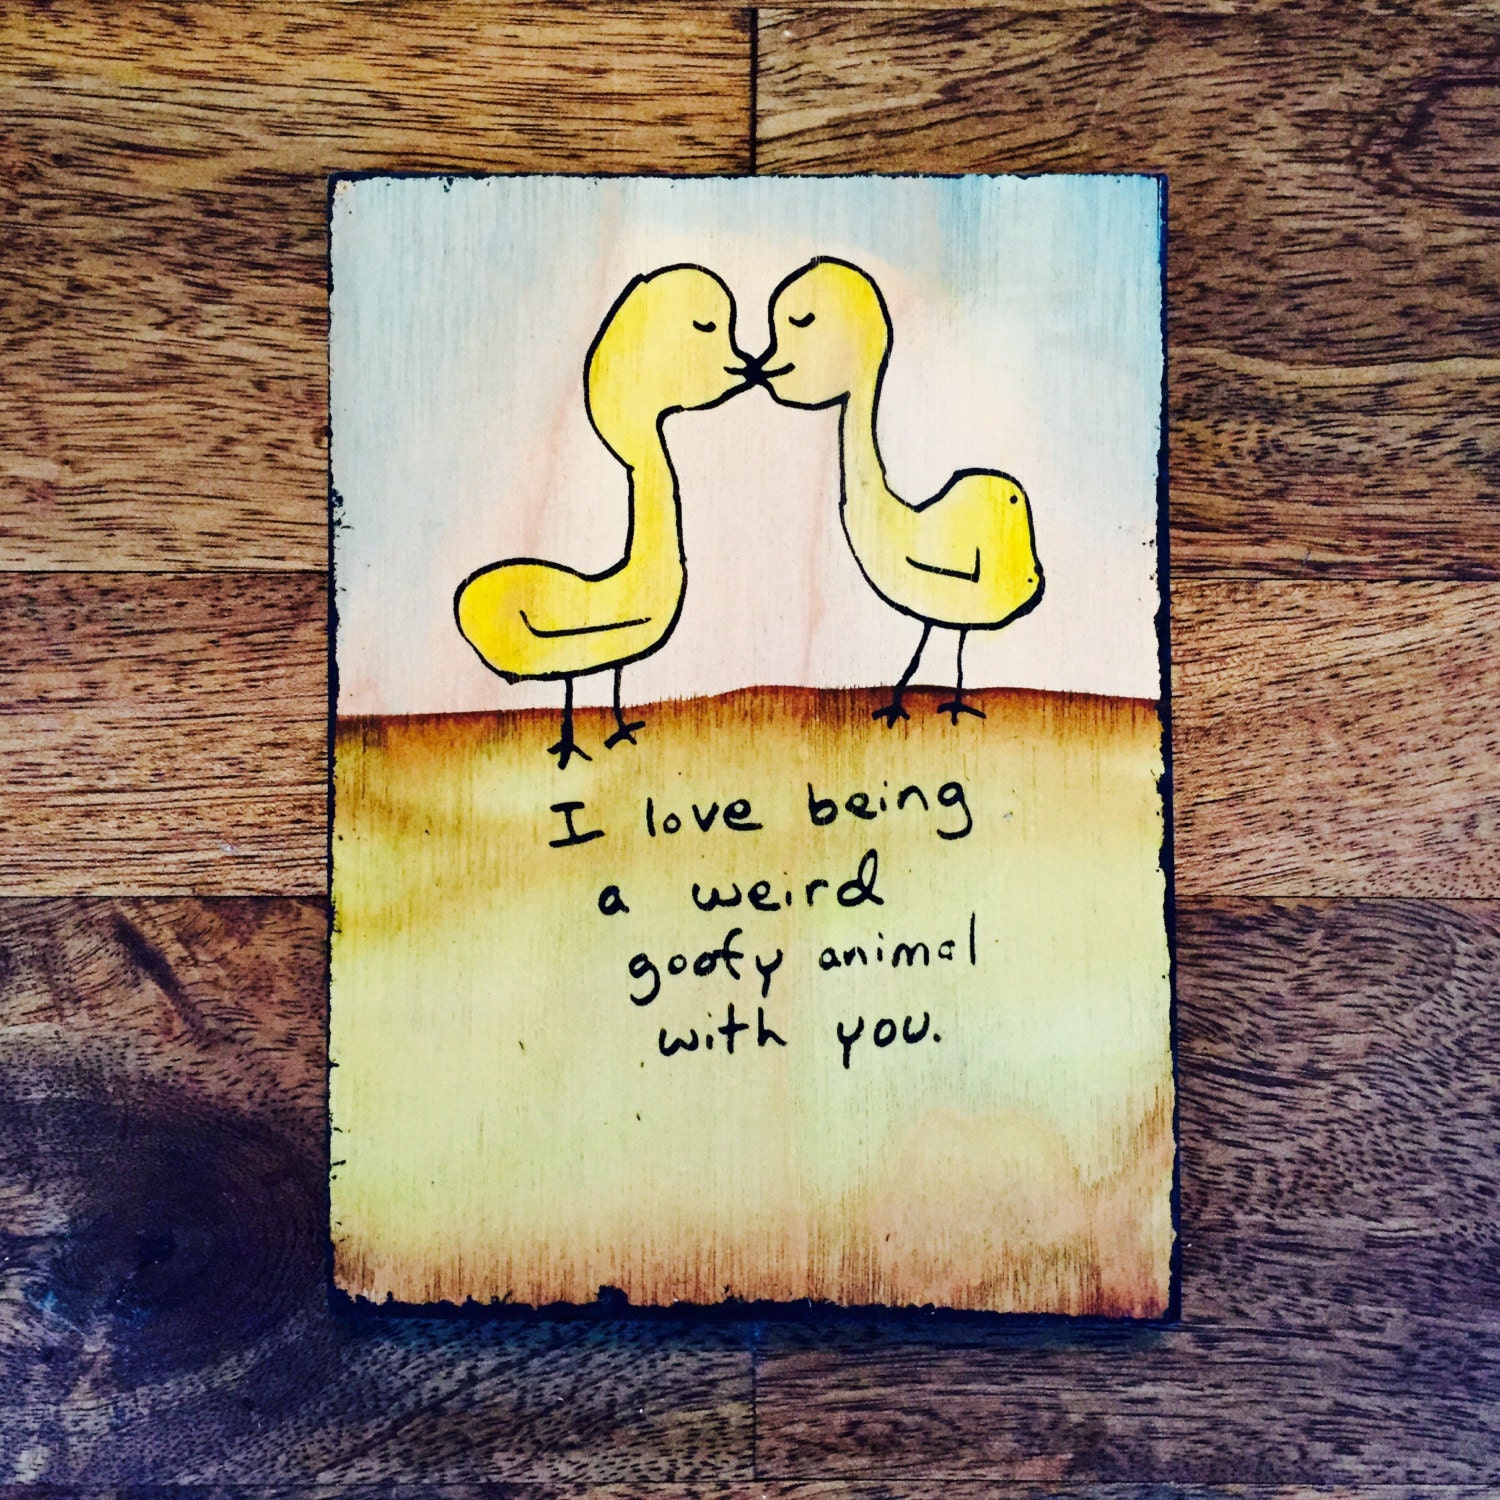 I love being
a weird
goofy animal
with you.